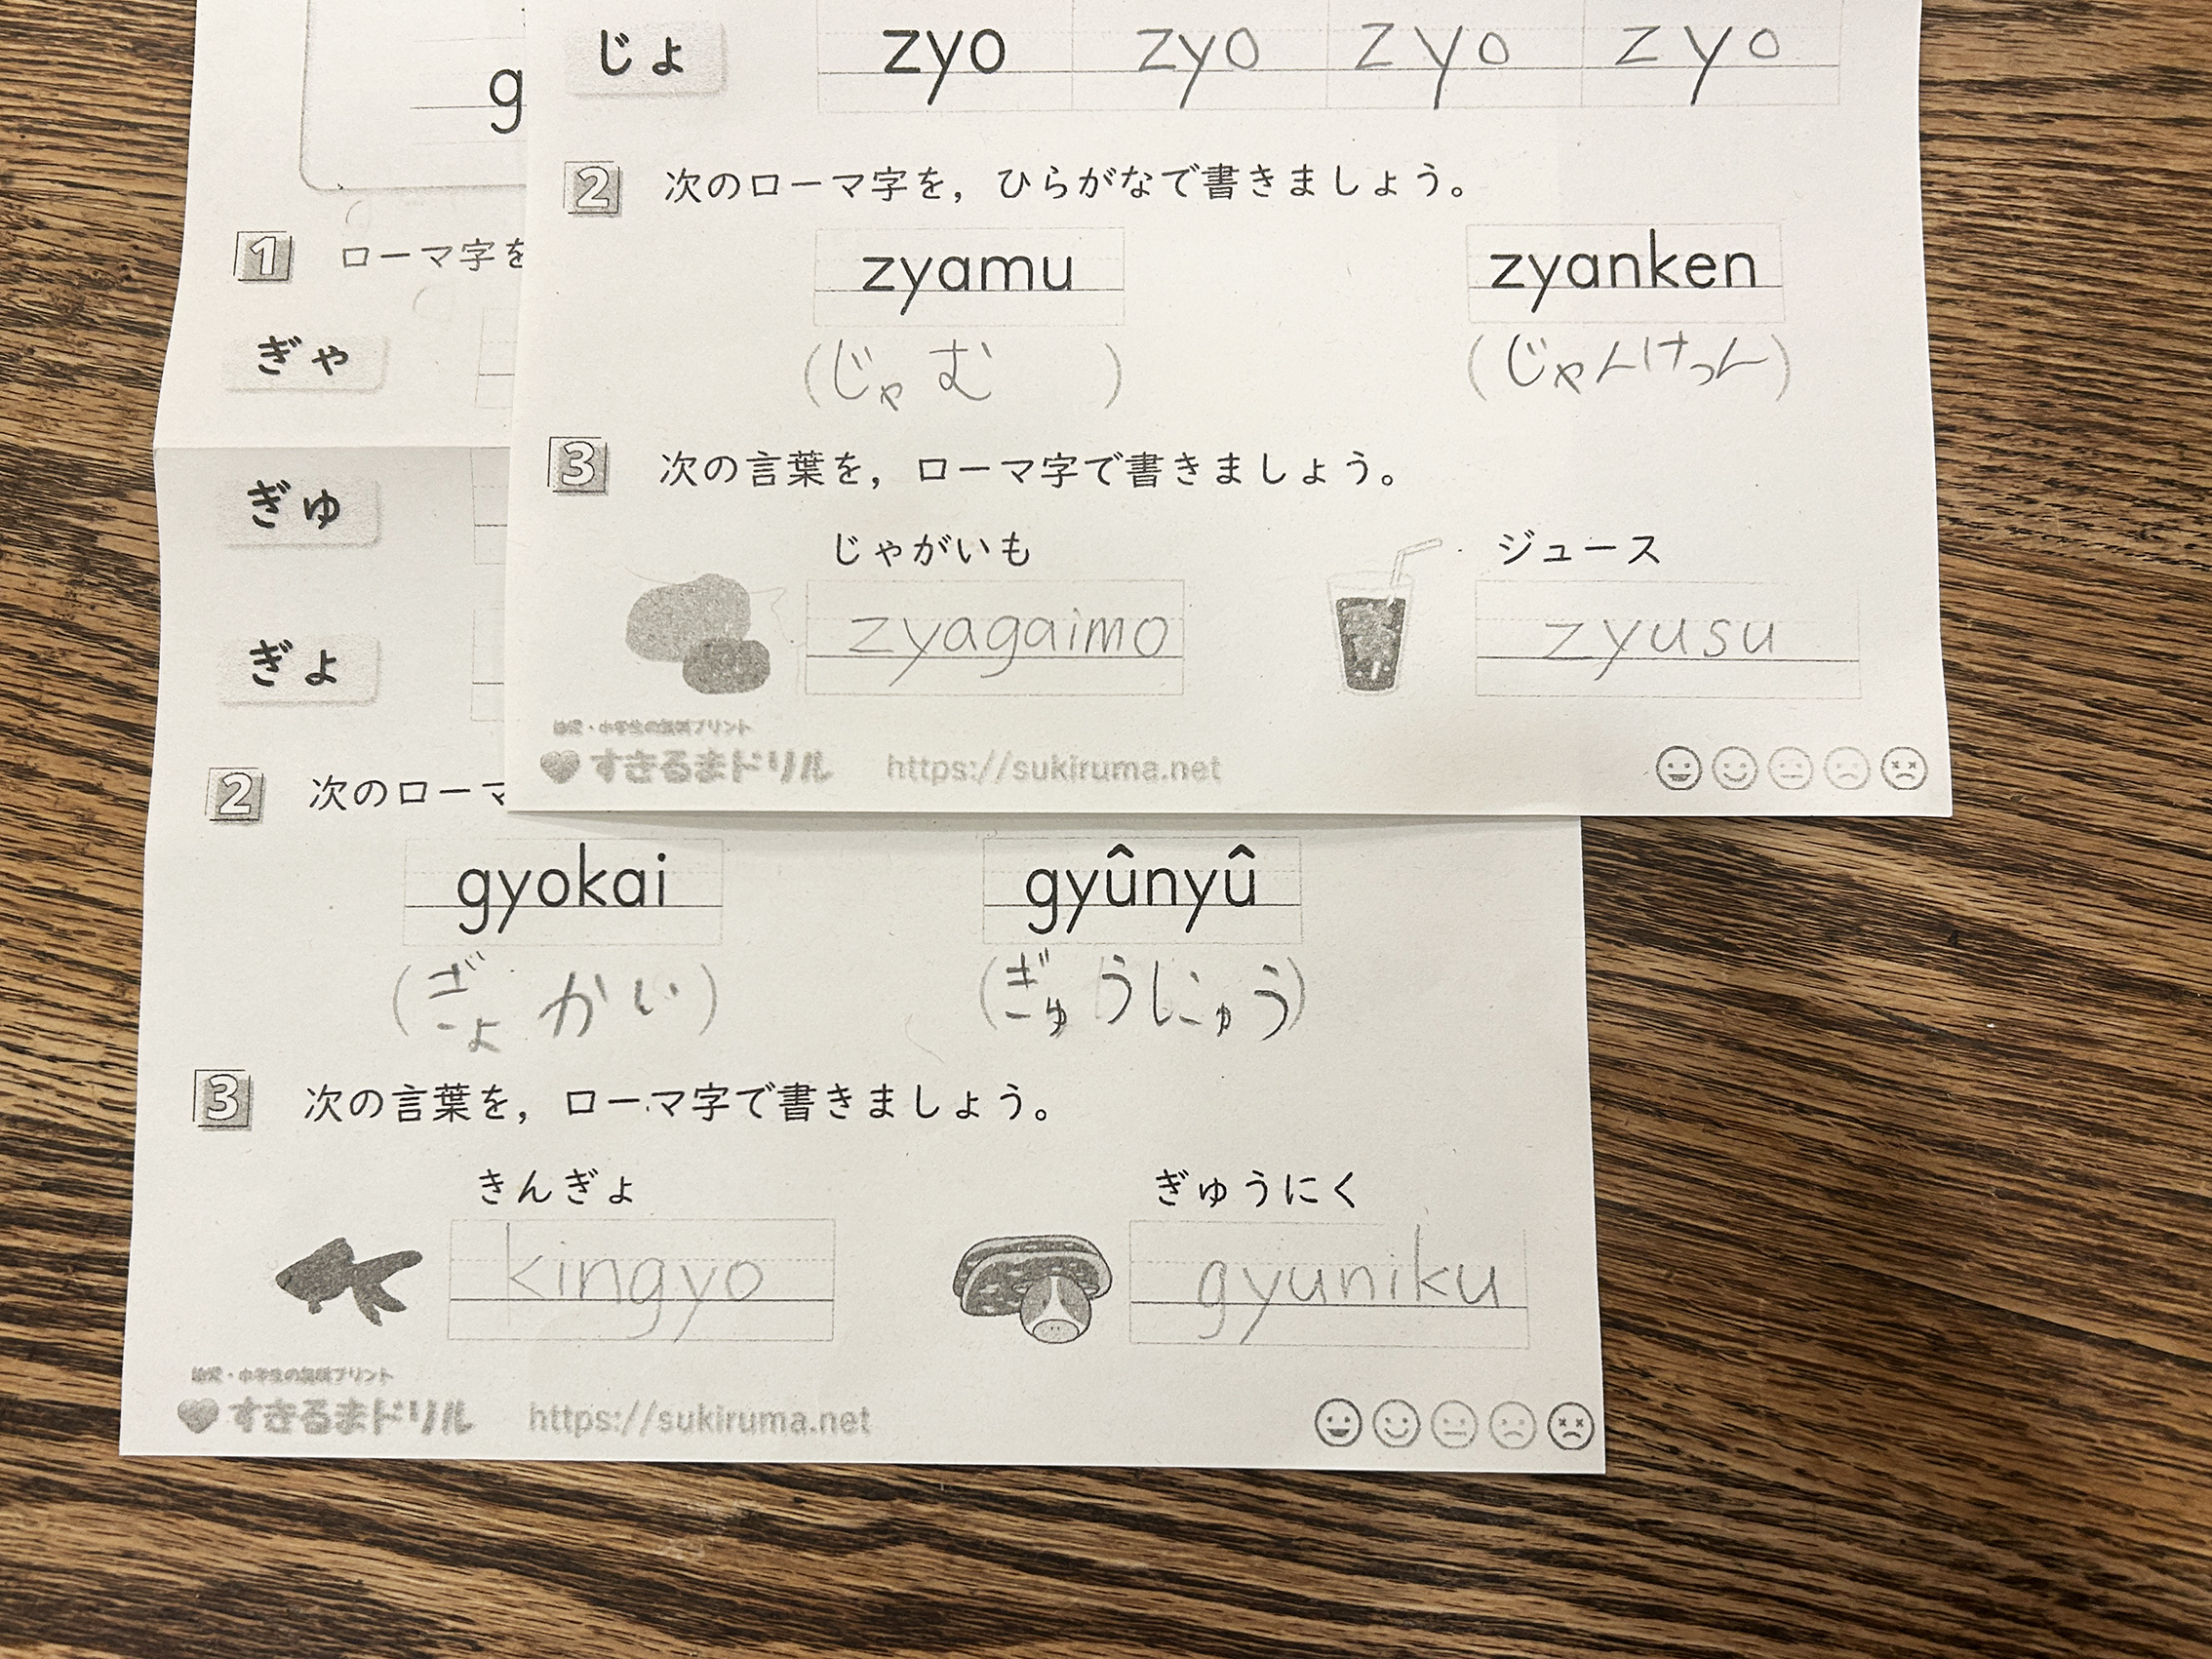 じょ zyo zyo zyo zyo
2 次のローマ字を，ひらがなで書きましょう。
zyamu zyanken
(じゃむ) (じゃんけっん)
3 次の言葉を，ローマ字で書きましょう。
じゃがいも ジュース
zyagaimo zyusu
幼児・小学生の無料プリント
すきるまドリル https://sukiruma.net
g
1 ローマ字を
ぎゃ
ぎゅ
ぎょ
2 次のローマ
gyokai gyûnyû
(ぎょかい) (ぎゅうにゅう)
3 次の言葉を，ローマ字で書きましょう。
きんぎょ ぎゅうにく
kingyo gyuniku
幼児・小学生の無料プリント
すきるまドリル https://sukiruma.net